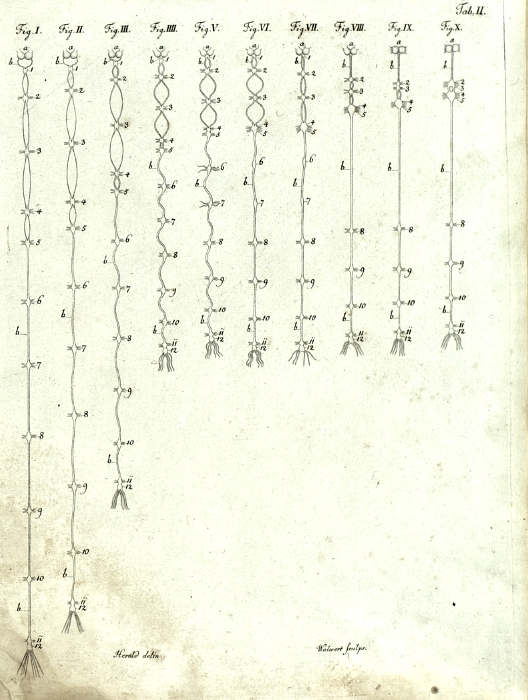 Tab. II.
Fig. I. Fig. II. Fig. III. Fig. IIII. Fig. V. Fig. VI. Fig. VII. Fig. VIII. Fig. IX. Fig. X.
a a a a a a a a a a
b b b b b b b b b b
1 1 1 1 1 1 1
2 2 2 2 2 2 2 2 2 2
3 3 3 3 3 3 3 3 3 3
4 4 4 4 4 4 4 4 4 4
5 5 5 5 5 5 5 5 5 5
b b b b b b b b b b
6 6 6 6 6 6
7 7 7 7 7 7 7
8 8 8 8 8 8 8 8 8 8
9 9 9 9 9 9 9 9 9 9
10 10 10 10 10 10 10 10 10 10
b b b b b b b b b b
11 11 11 11 11 11 11 11 11 11
12 12 12 12 12 12 12 12 12 12
Herold delin. Walwert sculps.